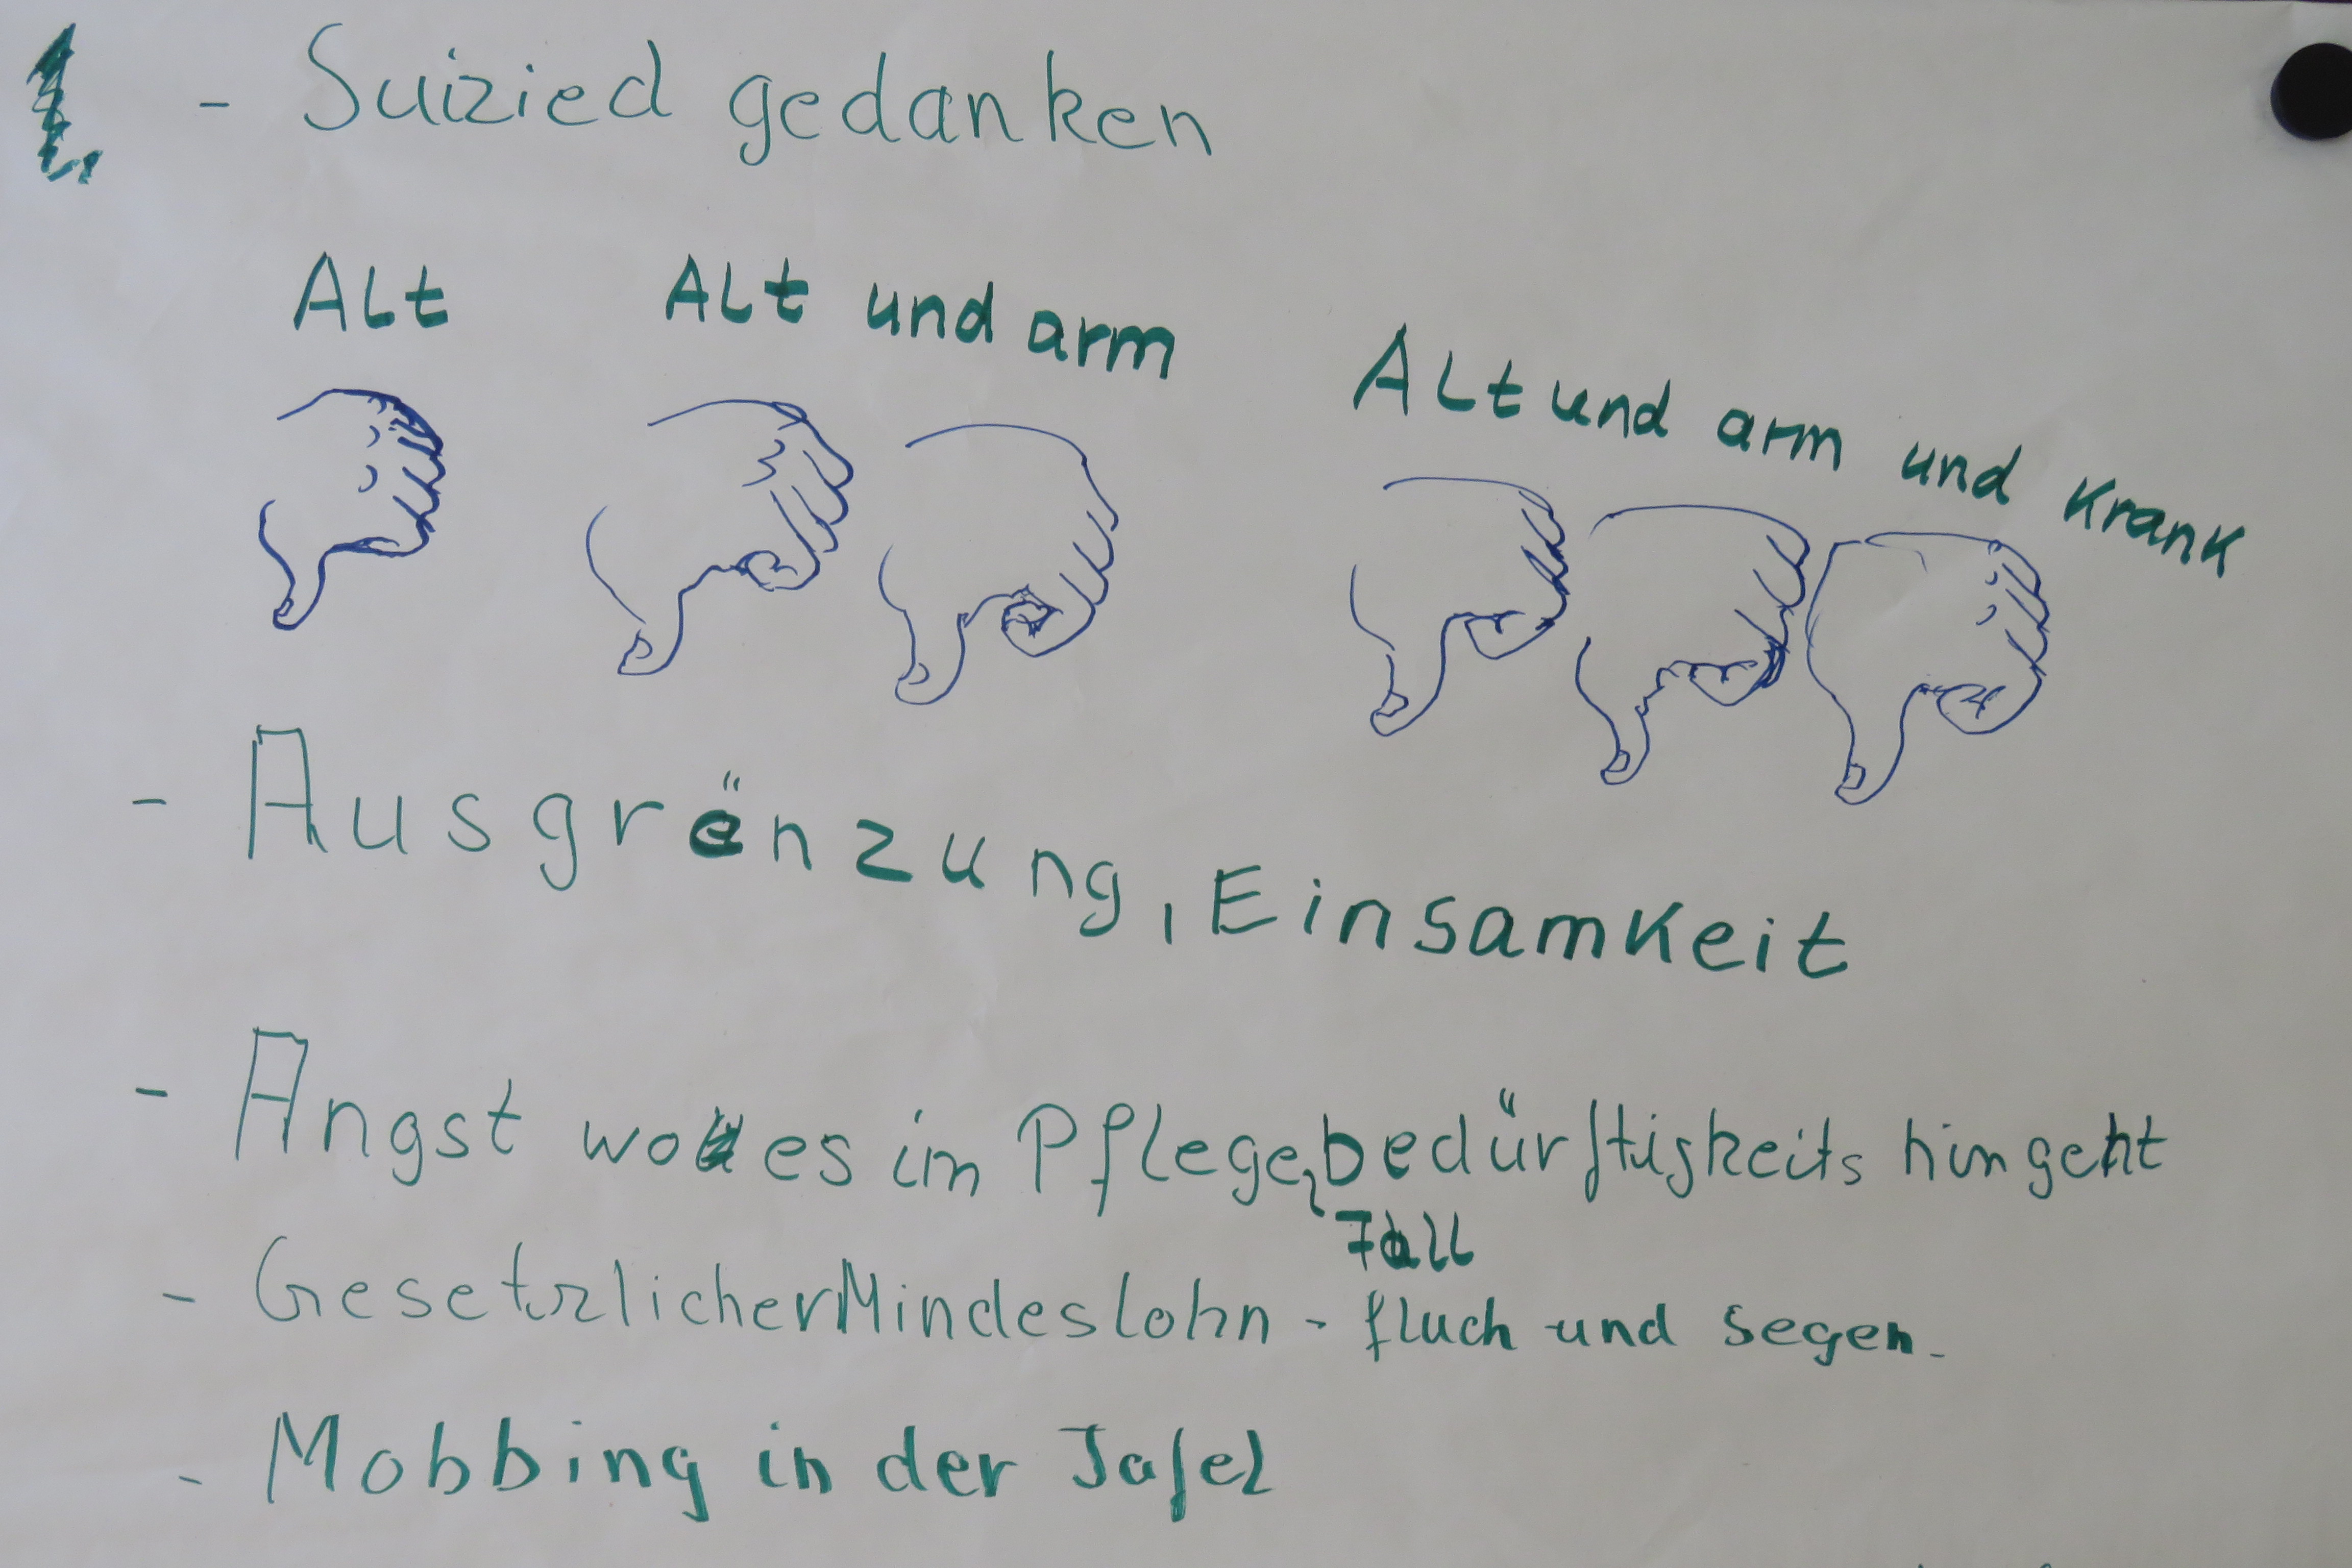 1. - Suizied gedanken
Alt Alt und arm
Alt und arm und Krank
- Ausgrënzung, Einsamkeit
- Angst wo es im Pflegebedürftigkeits hingeht
Fall
- Gesetzlicher Mindeslohn - fluch und segen.
- Mobbing in der Tafel